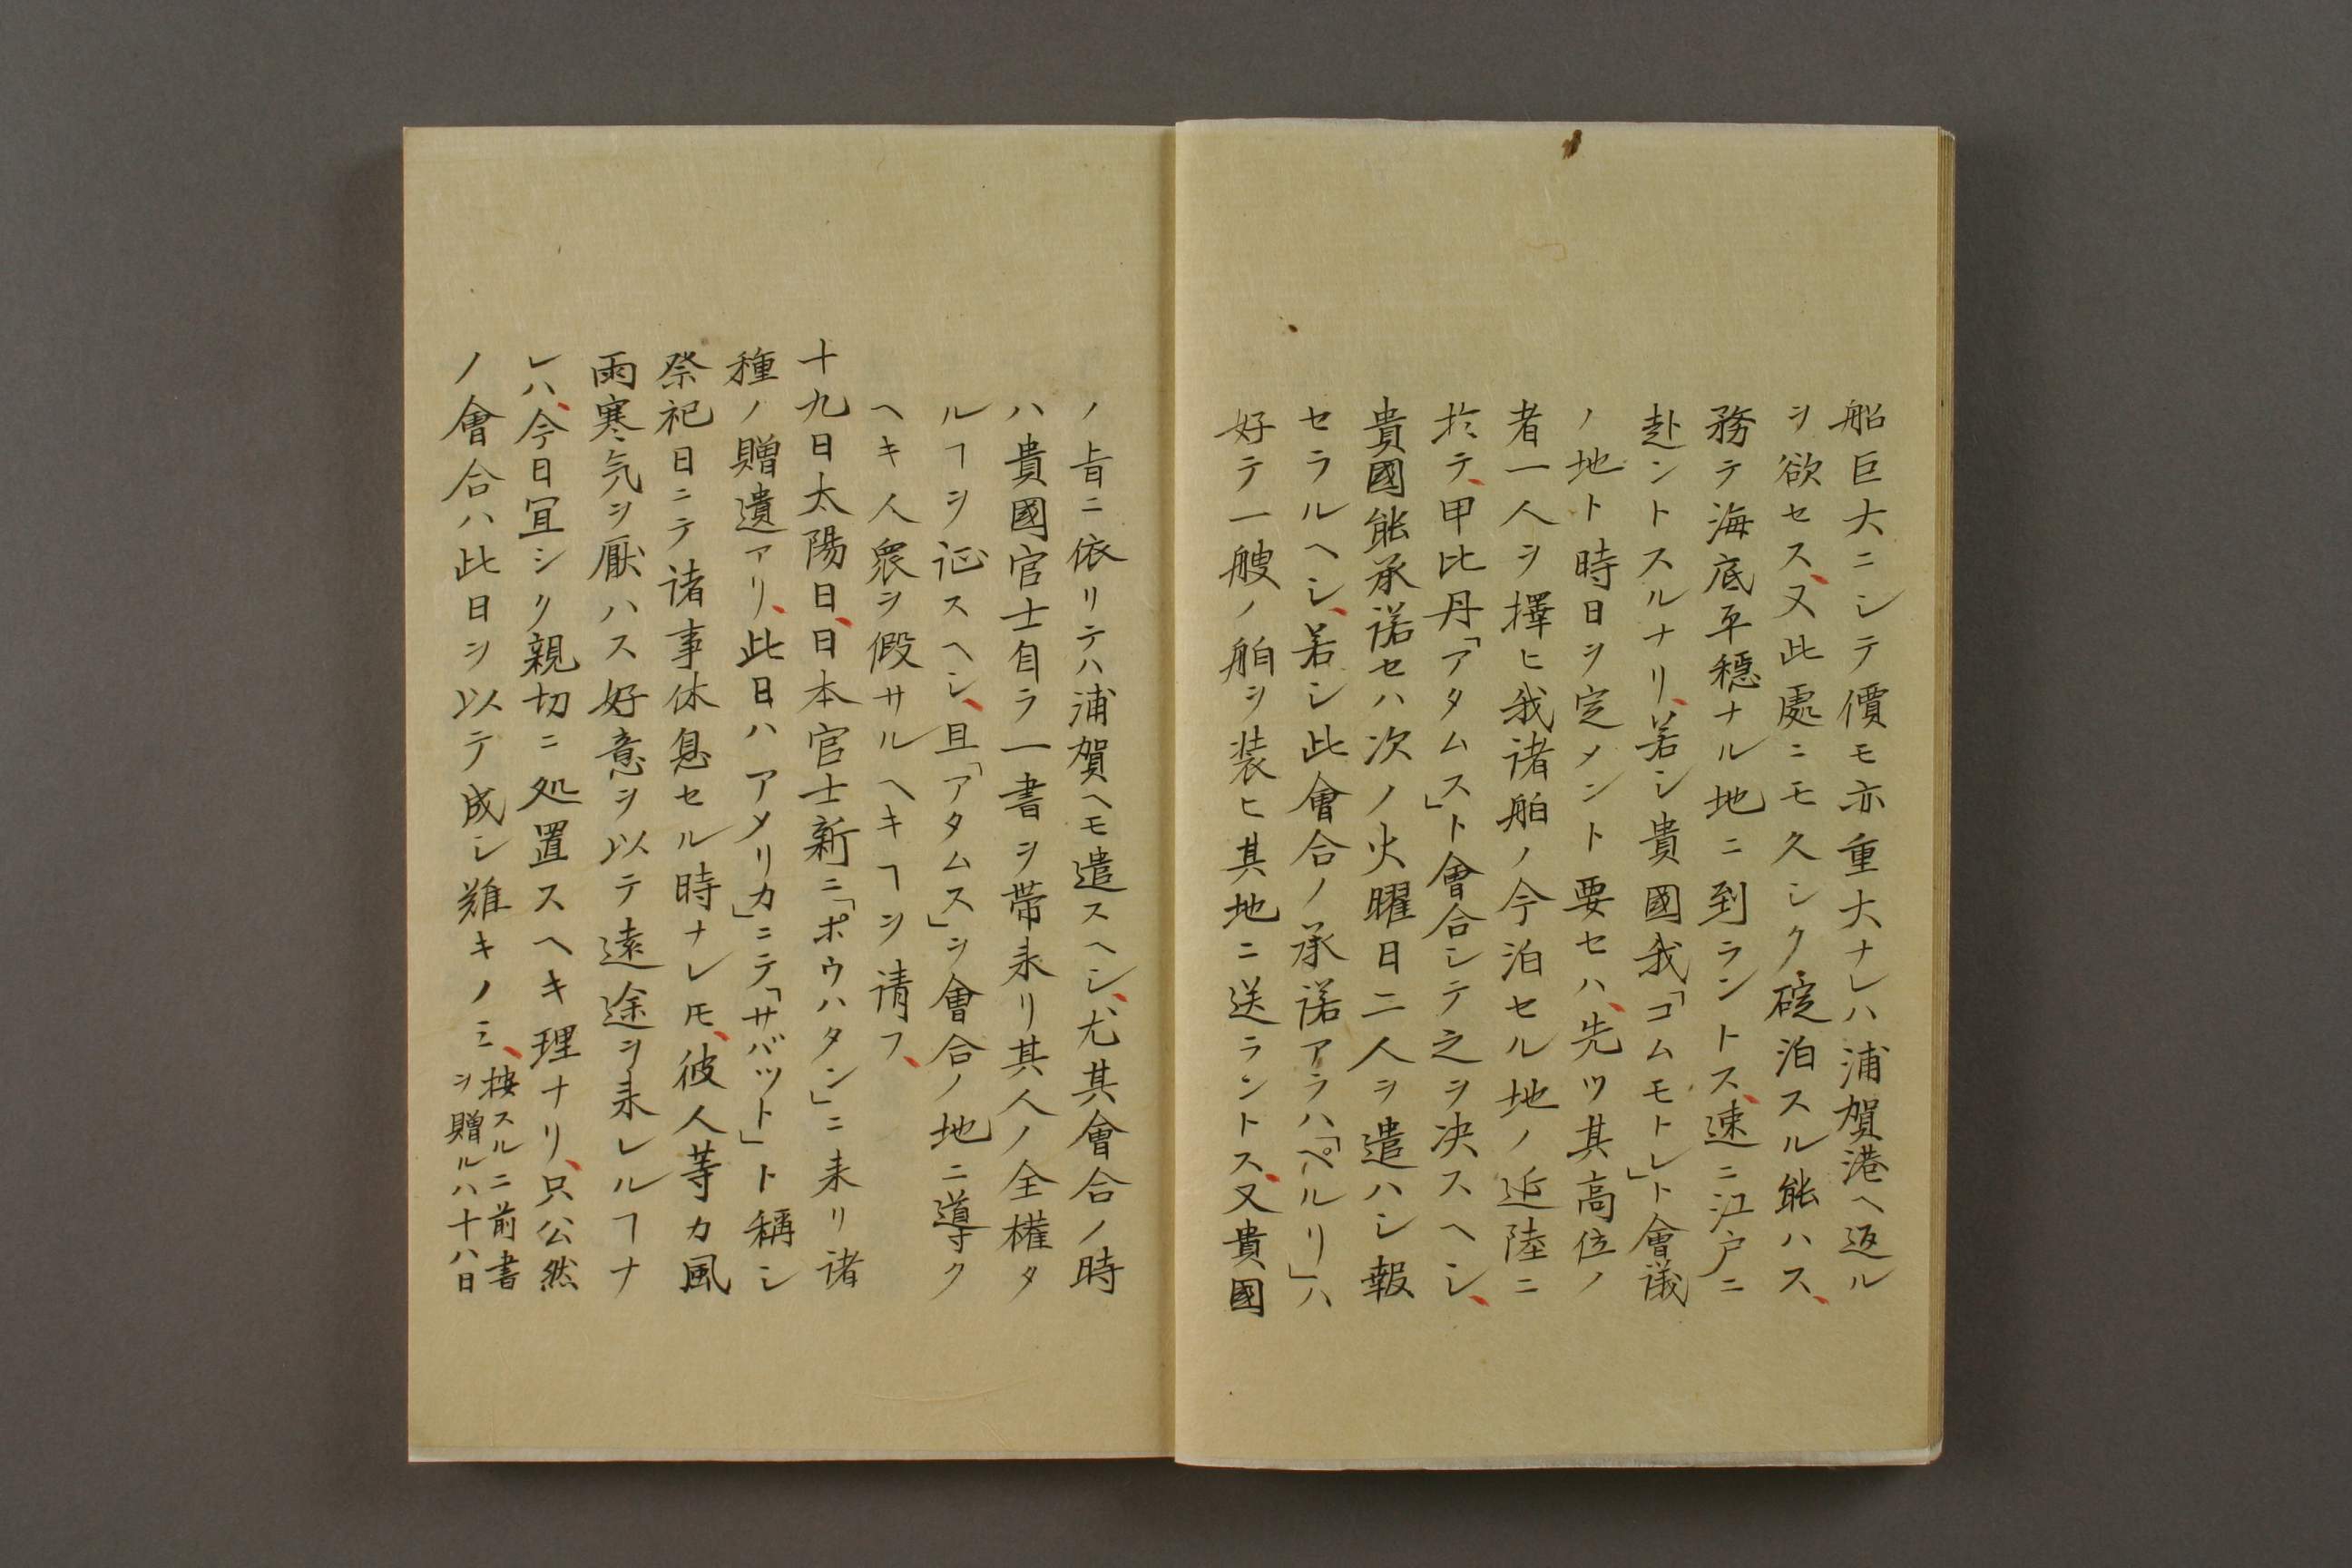 船巨大ニシテ價モ亦重大ナレハ浦賀港ヘ返ル
ヲ欲セス、又此處ニモ久シク碇泊スル能ハス、
務テ海底平穏ナル地ニ到ラントス、速ニ江戸ニ
赴ントスルナリ、若シ貴國我「コムモトレ」ト會議
ノ地ト時日ヲ定メント要セハ、先ツ其高位ノ
者一人ヲ擇ヒ我諸舶ノ今泊セル地ノ近陸ニ
於テ、甲比丹「アタムス」ト會合シテ之ヲ决スヘシ、
貴國能承諾セハ次ノ火曜日二人ヲ遣ハシ報
セラルヘシ、若シ此會合ノ承諾アラハ「ペルリ」ハ
好テ一艘ノ舶ヲ装ヒ其地ニ送ラントス、又貴國
ノ㫖ニ依リテハ浦賀ヘモ遣スヘシ、尤其會合ノ時
ハ貴國官士自ラ一書ヲ帯来リ其人ノ全權タ
ルヿヲ証スヘシ、且「アタムス」ヲ會合ノ地ニ導ク
ヘキ人衆ヲ假サルヘキヿヲ请フ、
十九日太陽日、日本官士新ニ「ポウハタン」ニ来リ诸
種ノ贈遺アリ、此日ハアメリカ」ニテ「サバット」ト稱シ
祭祀日ニテ诸事休息セル時ナレ𪜈、彼人等カ風
雨寒気ヲ厭ハス好意ヲ以テ遠途ヲ来レルヿナ
レハ、今日宜シク親切ニ処置スヘキ理ナリ、只公然
ノ會合ハ此日ヲ以テ成シ難キノミ、按スルニ前書
ヲ贈ルハ十八日